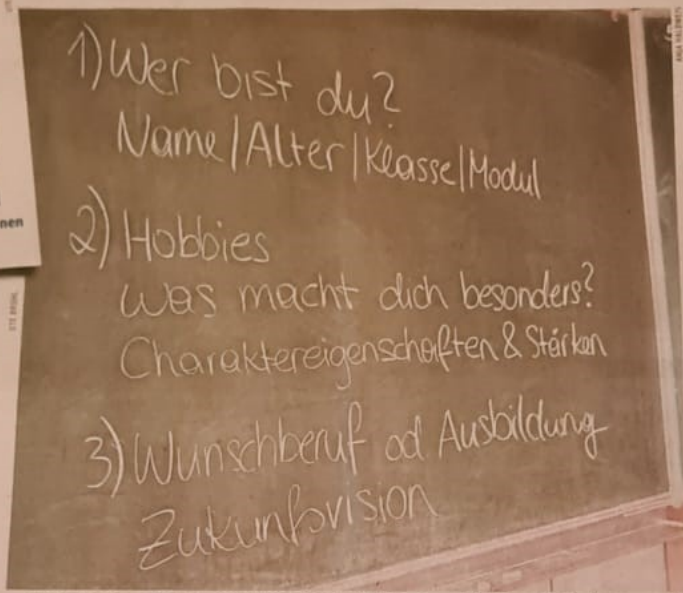 1) Wer bist du?
Name/Alter/Klasse/Modul
2) Hobbies
Was macht dich besonders?
Charaktereigenschaften & Stärken
3) Wunschberuf od Ausbildung
Zukunfsvision
nen